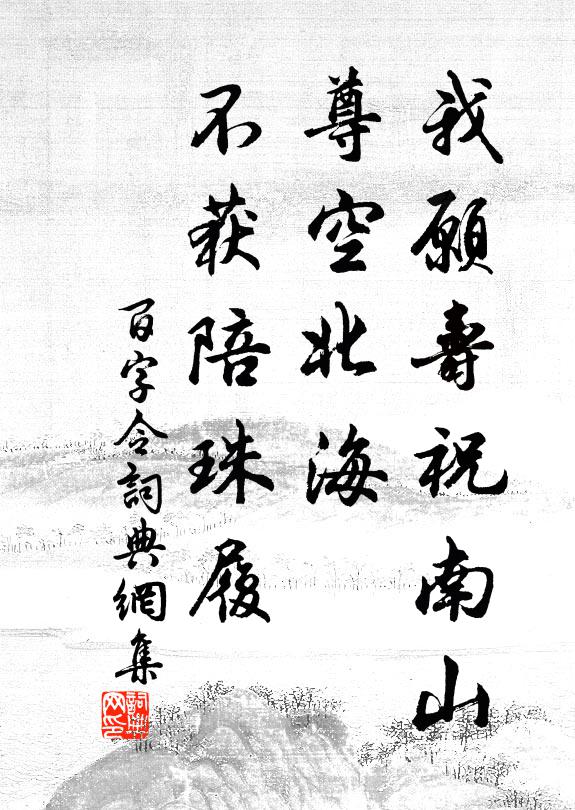 我願壽祝南山
尊空北海
不获陪珠履
百字令詞典網集